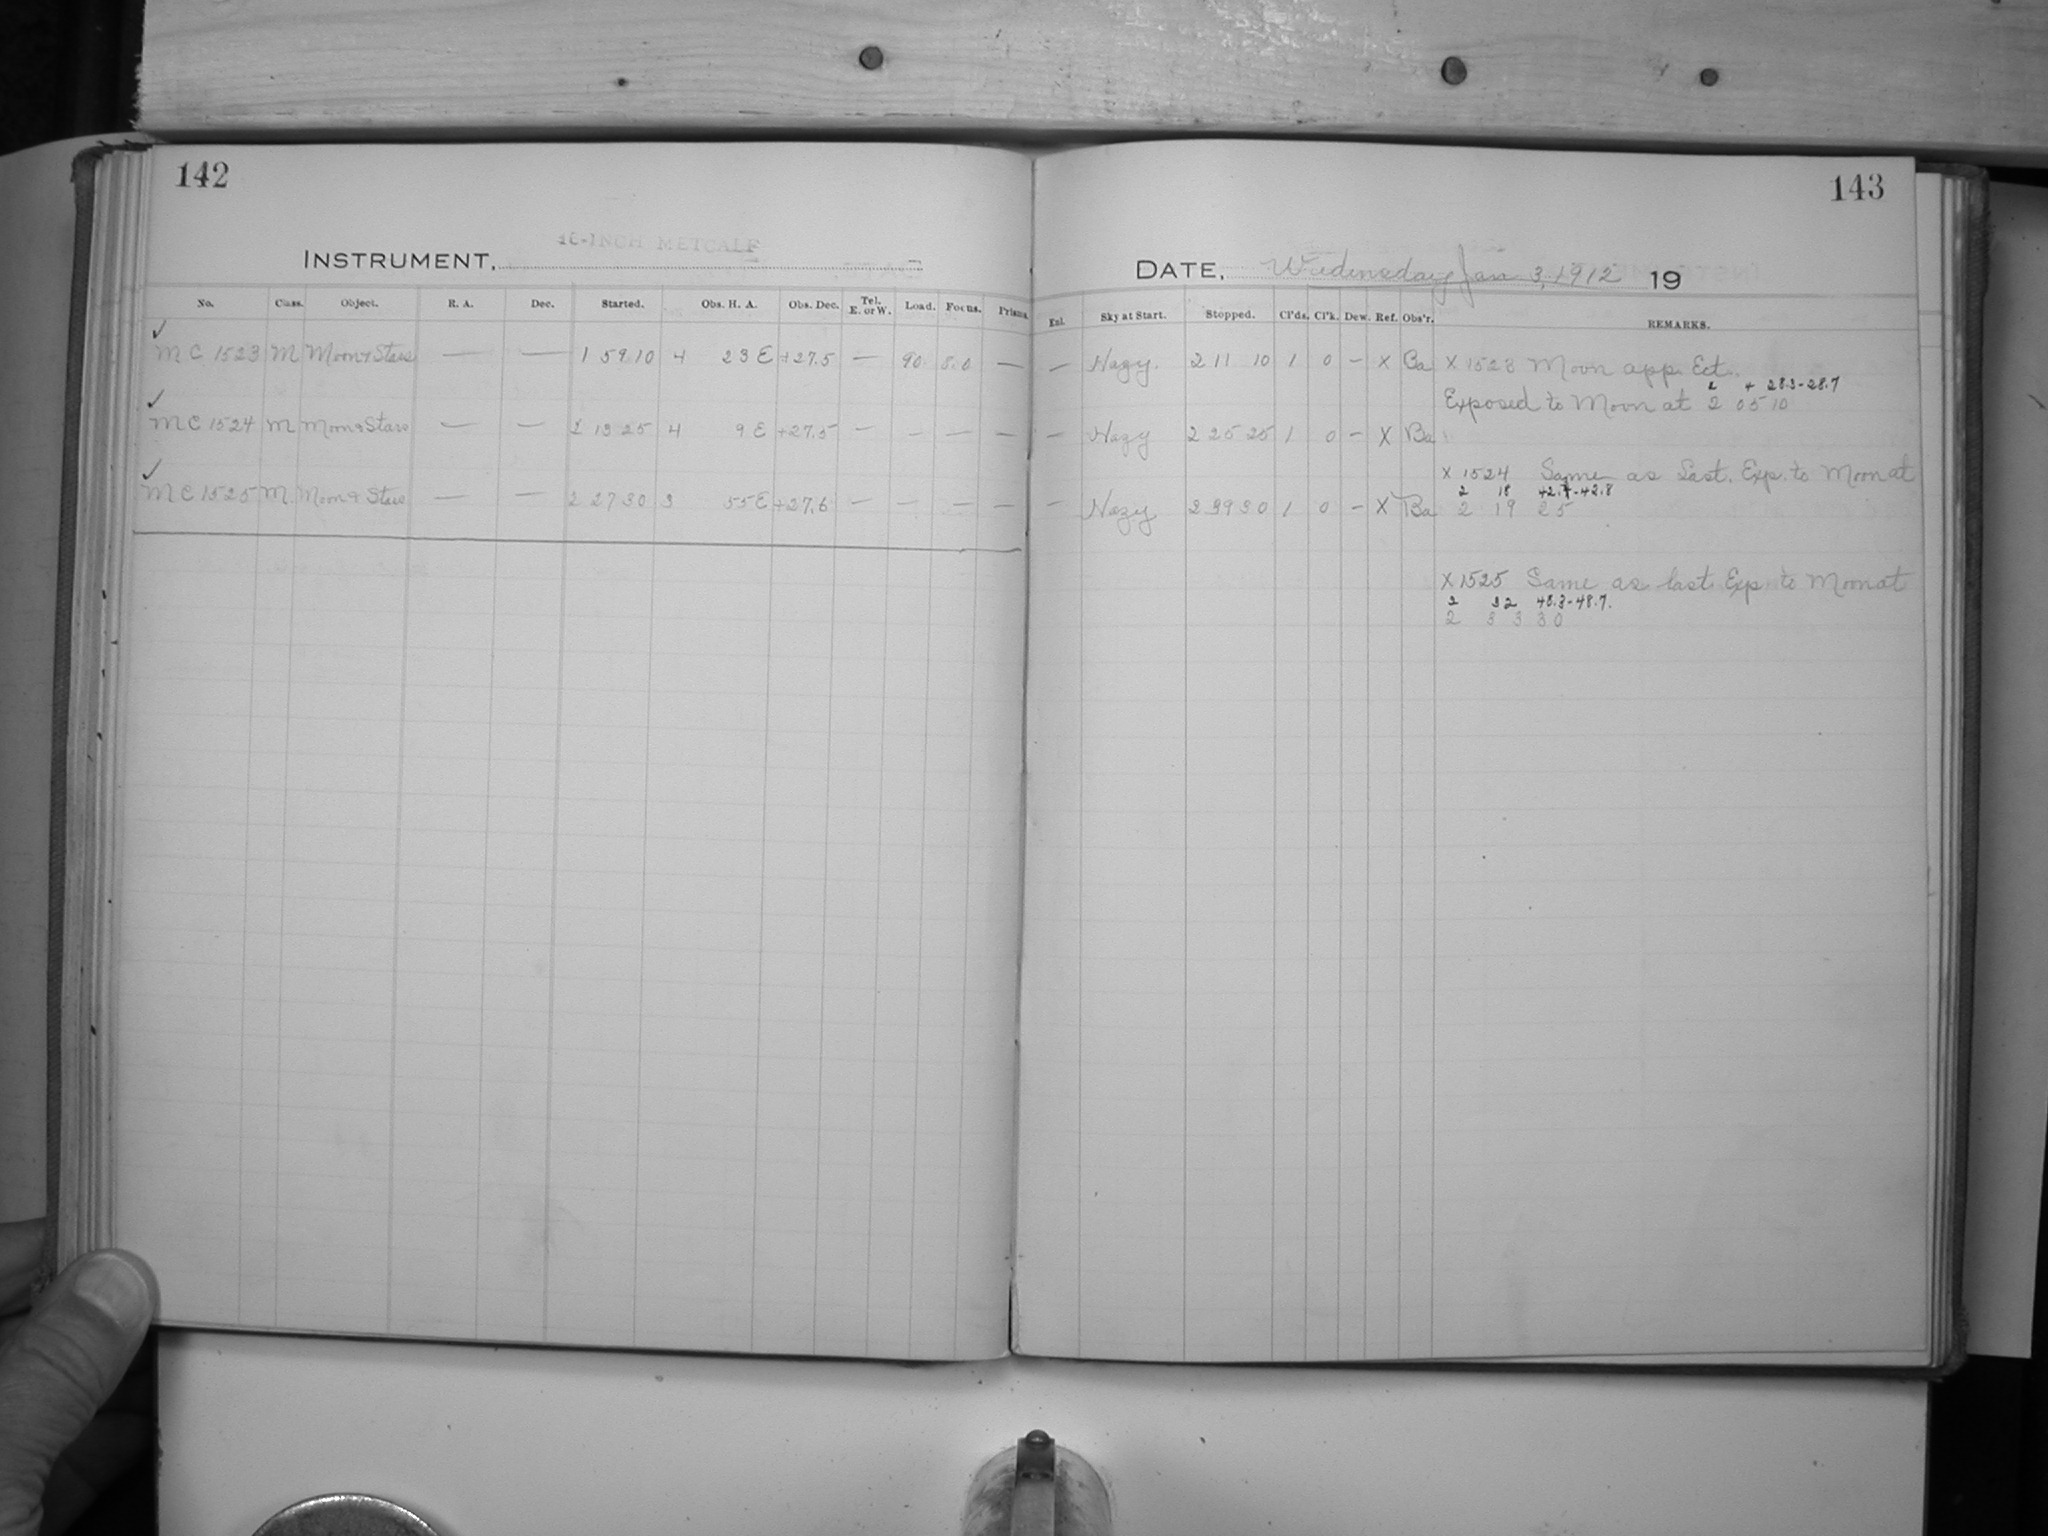 142
16-INCH METCALF
INSTRUMENT,
No. Class. Object. R. A. Dec. Started. Obs. H. A. Obs. Dec. Tel. E. or W. Load. Focus. Prisms.
✓
MC 1523 M Moon & Stars — — 1 59 10 4 23 E +27.5 — 90 8.0 —
✓
MC 1524 M Moon & Stars — — 2 13 25 4 9 E +27.5 — — — —
✓
MC 1525 M. Moon & Stars — — 2 27 30 3 55 E +27.6 — — — —
143
DATE, Wednesday Jan 3, 1912 19
Enl. Sky at Start. Stopped. Cl'ds. Cl'k. Dew. Ref. Obs'r. REMARKS.
— Hazy. 2 11 10 1 0 – X Ba X 1523 Moon app. Ect.
2 4 28.3-28.7
Exposed to Moon at 2 05 10
— Hazy 2 25 25 1 0 – X Ba
X 1524 Same as Last. Exp. to Moon at
2 18 42.4-42.8
— Hazy 2 39 30 1 0 – X Ba 2 19 25
X 1525 Same as last Exp to Moon at
2 32 48.3-48.7.
2 33 30